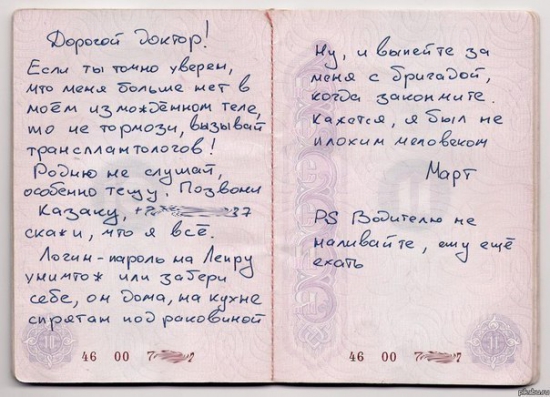 Дорогой Доктор!
Если ты точно уверен,
что меня больше нет в
моём измождённом теле,
то не тормози, вызывай
трансплантологов!
Родню не слушай,
особенно тещу. Позвони
Казаку,
скажи, что я всё.
Логин-пароль на Лепру
уничтож или забери
себе, он дома, на кухне
спрятан под раковиной
46 00
Ну, и выпейте за
меня с бригадой,
когда закончите.
Кажется, я был не
плохим человеком
Март
PS Водителю не
наливайте, ему ещё
ехать
46 00
pikabu.ru